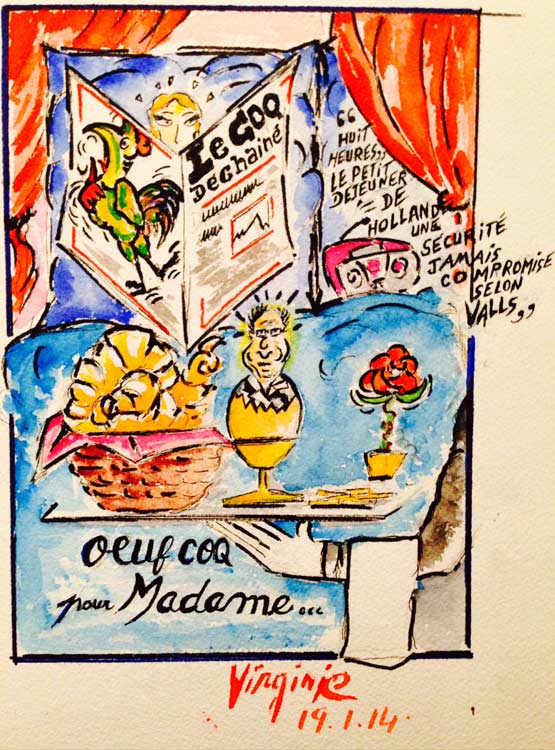 Le COQ
Déchainé
“
HUIT
HEURES,,
LE PETIT
DEJEUNER
DE
HOLLANDE
UNE
SÉCURITÉ
JAMAIS
COMPROMISE
SELON
VALLS,,
oeuf coq
pour Madame...
Virginie
19.1.14.